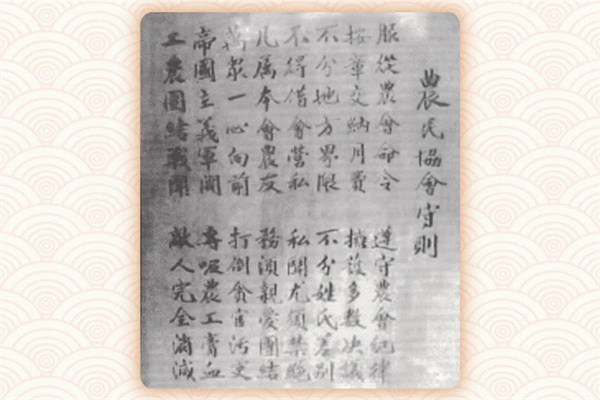 農民協會守則
服從農會命令 遵守農會紀律
按章交納月費 擁護多數决議
不分地方界限 不分姓氏差別
不得借會營私 私鬥尤須禁絕
凡属本會農友 務須親愛團結
萬眾一心向前 打倒貪官污吏
帝國主義軍閥 專吸農工膏血
工農團結戰鬥 敵人完全消滅